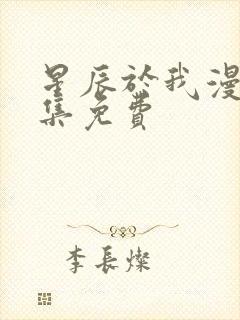 星辰於我漫
集免費
李長燦